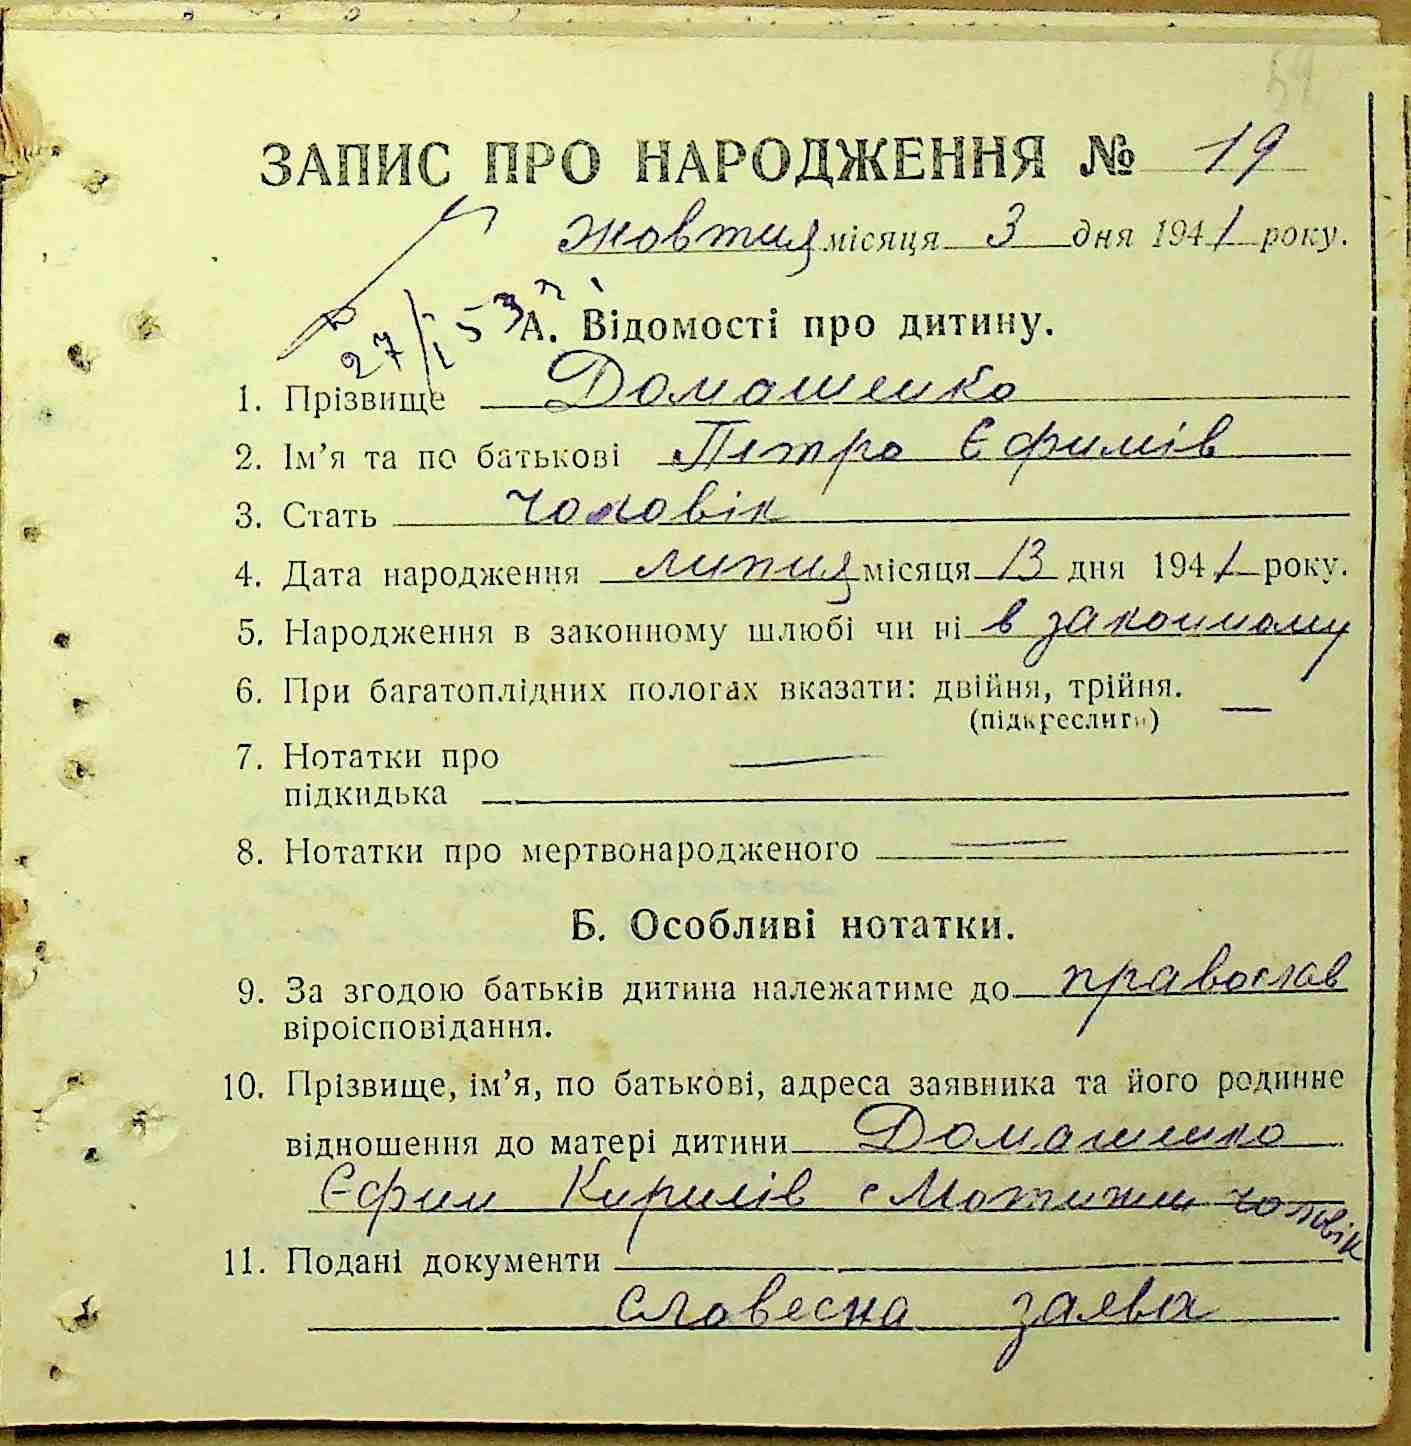 54
ЗАПИС ПРО НАРОДЖЕННЯ № 19
жовтня місяця 3 дня 1941 року.
27/I 53 г.
А. Відомості про дитину.
1. Прізвище Домашенко
2. Ім’я та по батькові Петро Єфимів
3. Стать чоловік
4. Дата народження липня місяця 13 дня 1941 року.
5. Народження в законному шлюбі чи ні в законному
6. При багатоплідних пологах вказати: двійня, трійня. —
(підкреслити)
7. Нотатки про —
підкидька
8. Нотатки про мертвонародженого —
Б. Особливі нотатки.
9. За згодою батьків дитина належатиме до православ
віроісповідання.
10. Прізвище, ім’я, по батькові, адреса заявника та його родинне
відношення до матері дитини Домашенко
Єфим Кирилів с Мотижин чоловік
11. Подані документи
словесна заява